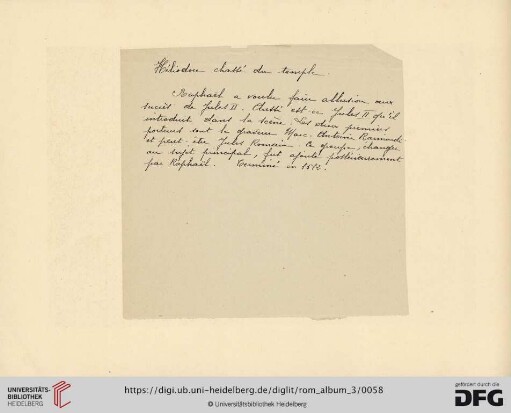 Héliodore chassé du temple.
Raphaël a voulu faire allusion aux
succès de Jules II. Aussi est-ce Jules II qu'il
introduit dans la scène. Les deux premiers
porteurs sont le graveur Marc-Antoine Raimondi
et peut-être Jules Romain. Ce groupe, étranger
au sujet principal, fut ajouté postérieurement
par Raphaël. Terminé en 1512.
UNIVERSITÄTS-
BIBLIOTHEK
HEIDELBERG
https://digi.ub.uni-heidelberg.de/diglit/rom_album_3/0058
© Universitätsbibliothek Heidelberg
gefördert durch die
DFG